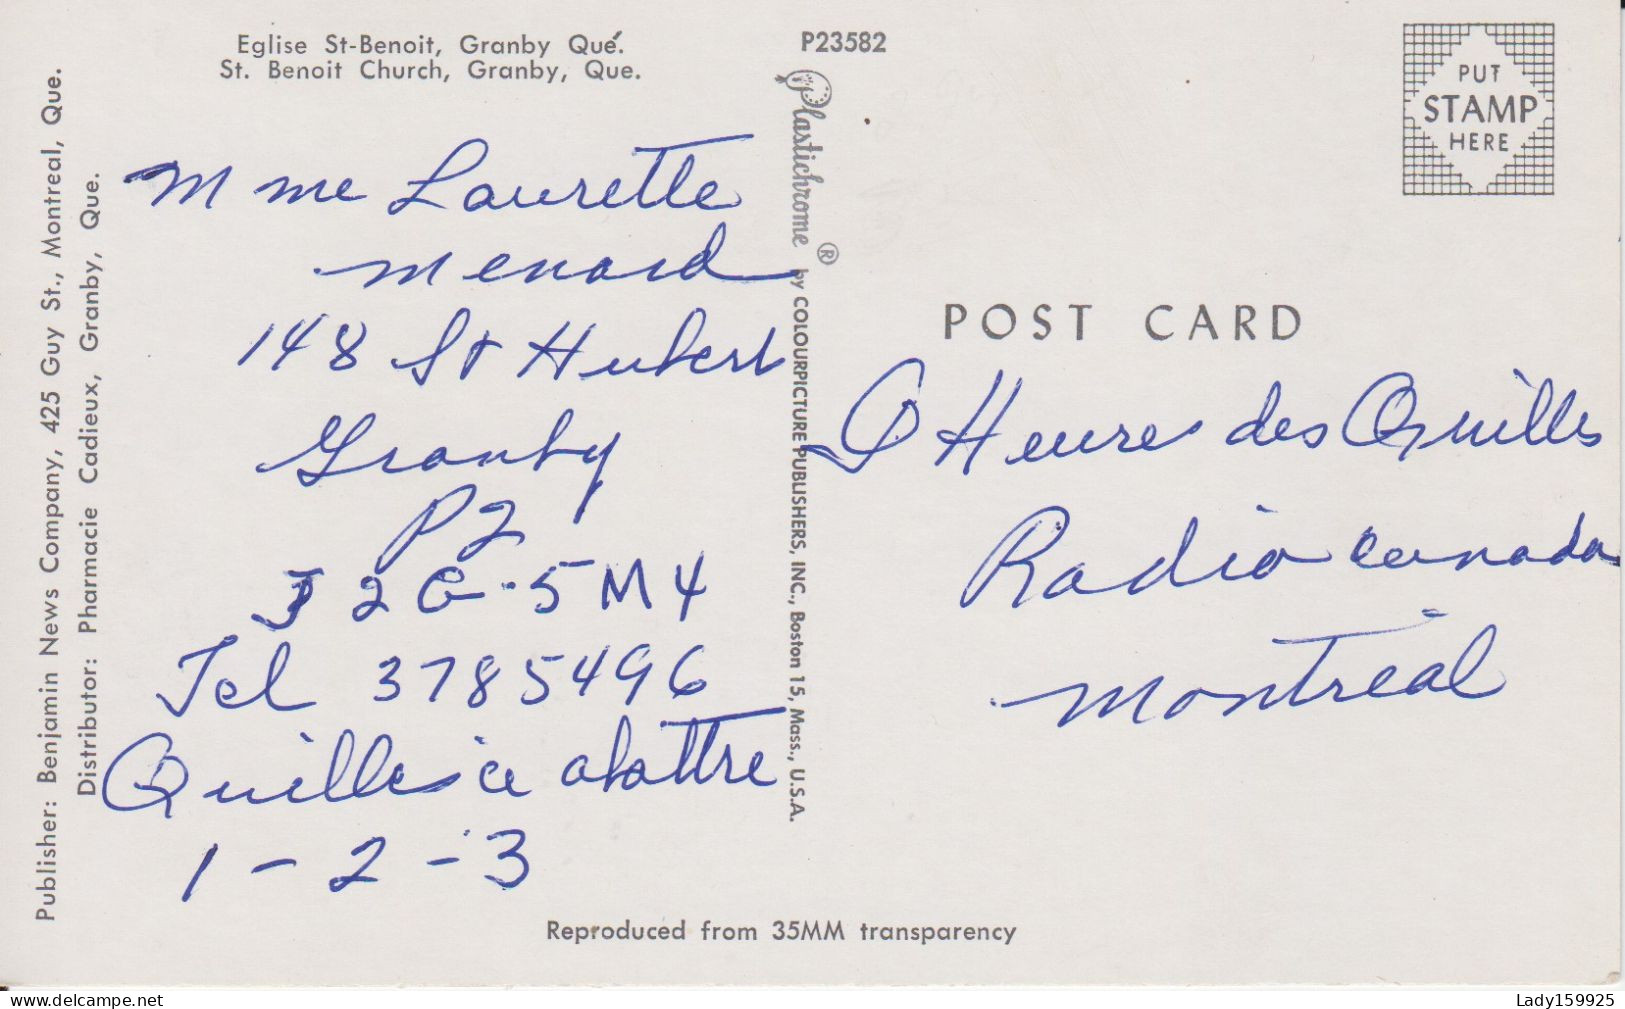 Eglise St-Benoit, Granby Qué.
St. Benoit Church, Granby, Que.
P23582
PUT
STAMP
HERE
Publisher: Benjamin News Company, 425 Guy St., Montreal, Que.
Distributor: Pharmacie Cadieux, Granby, Que.
Mme Laurette
Menard
148 St Hubert
Granby
P2
J2G-5M4
Tel 3785496
Quilles a abattre
1-2-3
Plastichrome ® by COLOURPICTURE PUBLISHERS, INC., Boston 15, Mass., U.S.A.
POST CARD
Heures des Quilles
Radio canada
Montréal
Reproduced from 35MM transparency
delcampe.net
Lady159925